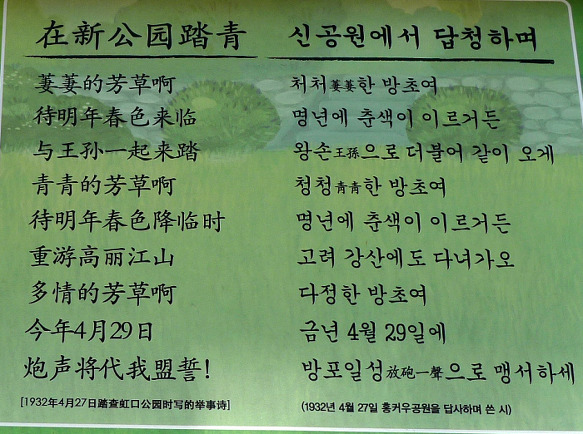 在新公园踏青
萋萋的芳草啊
待明年春色来临
与王孙一起来踏
青青的芳草啊
待明年春色降临时
重游高丽江山
多情的芳草啊
今年4月29日
炮声将代我盟誓!
[1932年4月27日踏查虹口公园时写的举事诗]
신공원에서 답청하며
처처萋萋한 방초여
명년에 춘색이 이르거든
왕손王孫으로 더불어 같이 오게
청청青青한 방초여
명년에 춘색이 이르거든
고려 강산에도 다녀가오
다정한 방초여
금년 4월 29일에
방포일성放砲一聲으로 맹서하세
(1932년 4월 27일 홍커우공원을 답사하며 쓴 시)